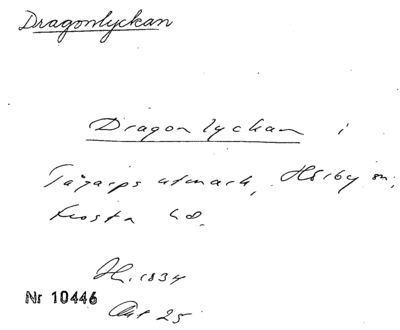 Dragonlyckan
Dragonlyckan i
Tågarps utmark, Hörby sn,
Frosta hd.
H. 1834
Nr 10446
Akt 25